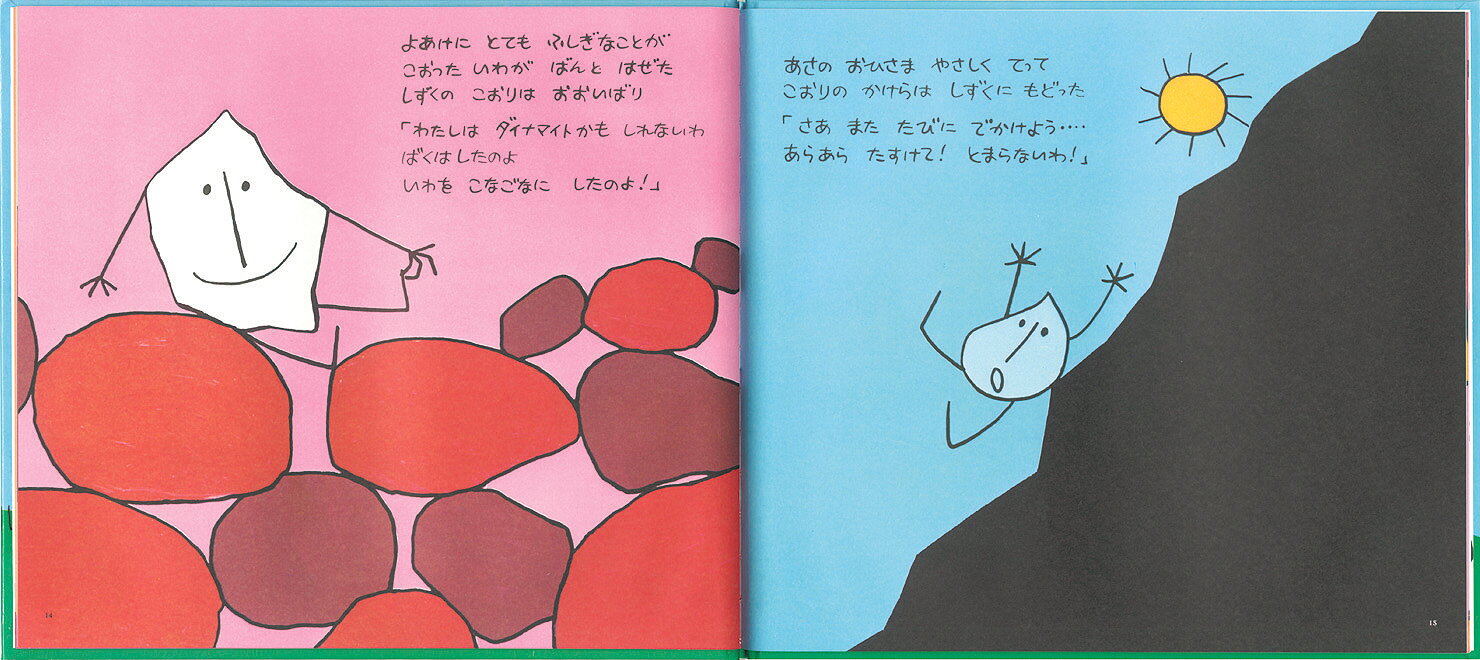 よあけに とても ふしぎなことが
こおった いわが ばんと はぜた
しずくの こおりは おおいばり
「わたしは ダイナマイトかも しれないわ
ばくはしたのよ
いわを こなごなに したのよ!」
14
あさの おひさま やさしく てって
こおりの かけらは しずくに もどった
「さあ また たびに でかけよう‥‥
あらあら たすけて! とまらないわ!」
15